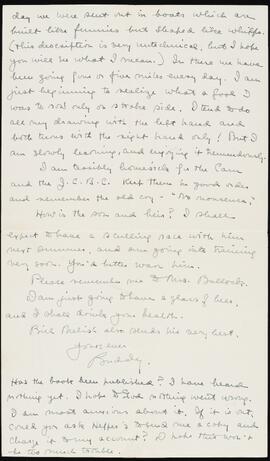 day we were sent out in boats which are
built like funnies but shaped like whiffs.
(this description is very untechnical, but I hope
you will see what I mean.) In these we have
been going four or five miles every day. I am
just beginning to realize what a fool I
was to row only on stroke side. I tend to do
all my drawing with the left hand and
both turns with the right hand only! But I
am slowly learning, and enjoying it tremendously.
I am terribly homesick for the Cam
and the J.C.B.C. Keep them in good order
and remember the old cry - "No nonsense,"
How is the son and heir? I shall
expect to have a sculling race with him
next summer, and am going into training
very soon. You'd better warn him.
Please remember me to Mrs. Bullock.
I am just going to have a glass of beer,
and I shall drink your health.
Bill Melish also sends his very best.
Yours ever
Buddy.
Has the book been published? I have heard
nothing yet. I hope to God nothing went wrong.
I am most anxious about it. If it is out,
could you ask Heffer's to send me a copy and
charge it to my account? I hope this won't
be too much trouble.